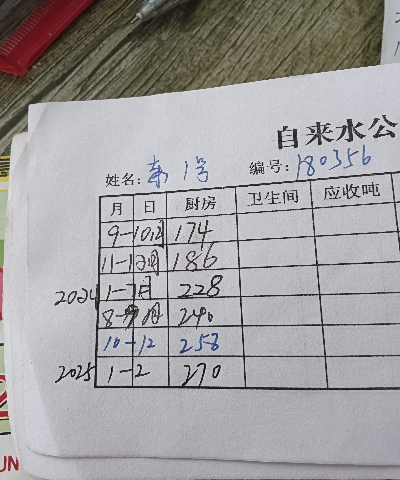 自来水公
姓名: 东1号 编号: 180356
月 日 厨房 卫生间 应收吨
9-10月 174
11-12月 186
2024 1-7月 228
8-9月 240
10-12 258
2025 1-2 270
UN